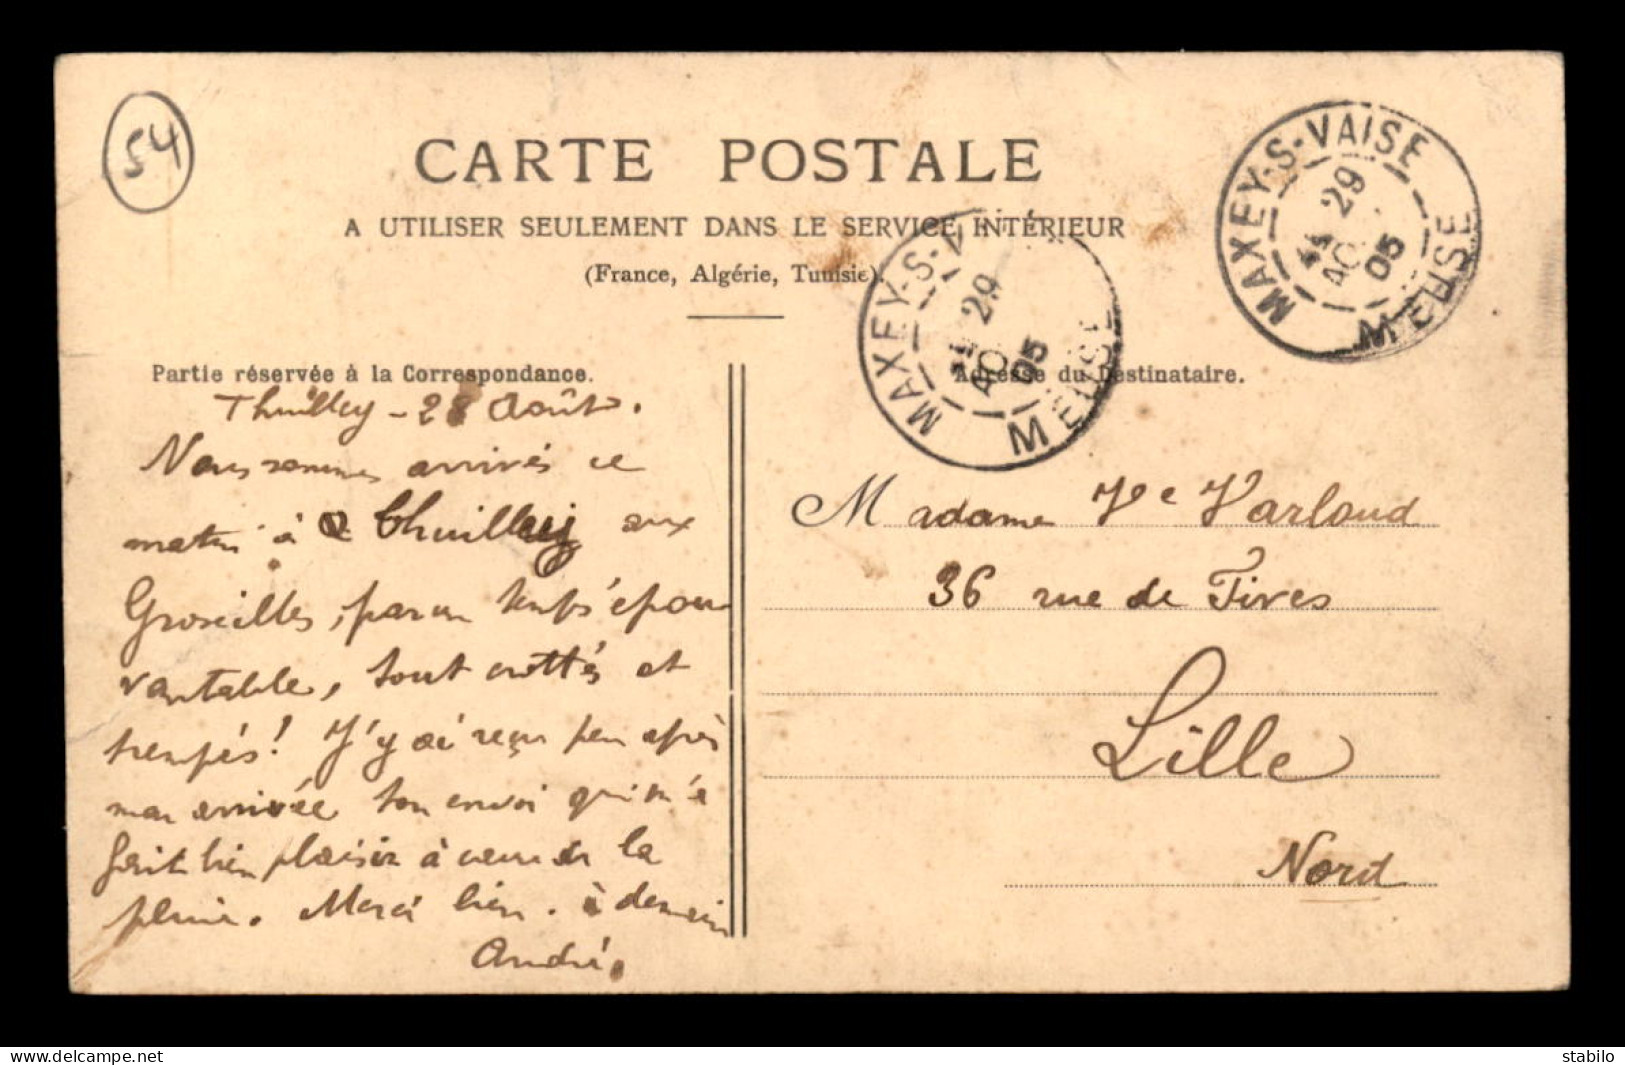 54
CARTE POSTALE
A UTILISER SEULEMENT DANS LE SERVICE INTÉRIEUR
(France, Algérie, Tunisie).
MAXEY-S-VAISE
29
AO
05
MEUSE
MAXEY-S-V
29
AO
05
MEUSE
Partie réservée à la Correspondance.
Thuilley - 28 Août.
Nous sommes arrivés ce
matin à Thuilley aux
Groseilles, par un temps épou
vantable, tout crottés et
trempés! J'y ai reçu peu après
mon arrivée ton envoi qui m'a
fait bien plaisir à cause de la
pluie. Merci bien. à demain
André.
Adresse du Destinataire.
Madame Ve Varloud
36 rue de Fives
Lille
Nord
www.delcampe.net
stabilo